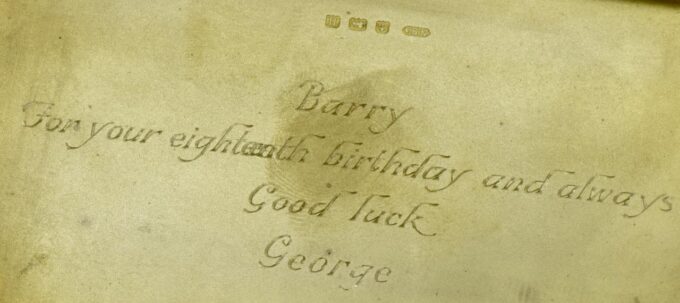 Barry
For your eighteenth birthday and always
Good luck
George